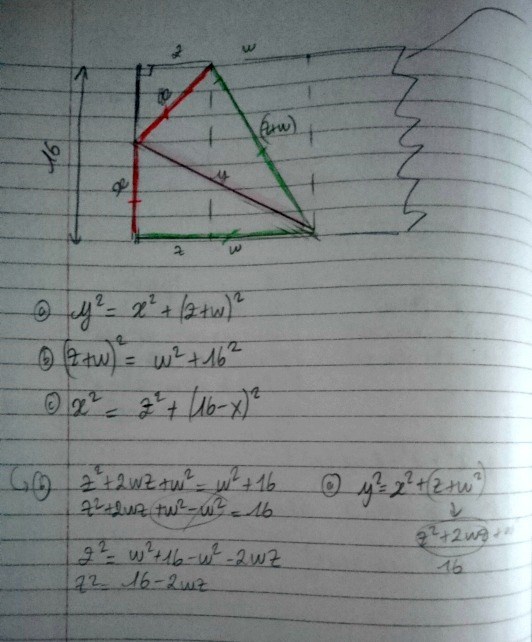 z w
16
x
(z+w)
y
x
z w
ⓐ y² = x² + (z+w)²
ⓑ (z+w)² = w² + 16²
ⓒ x² = z² + (16-x)²
ⓑ z² + 2wz + w² = w² + 16
z² + 2wz + w² - w² = 16
z² = w² + 16 - w² - 2wz
z² = 16 - 2wz
ⓐ y² = x² + (z+w²)
z² + 2wz +
16